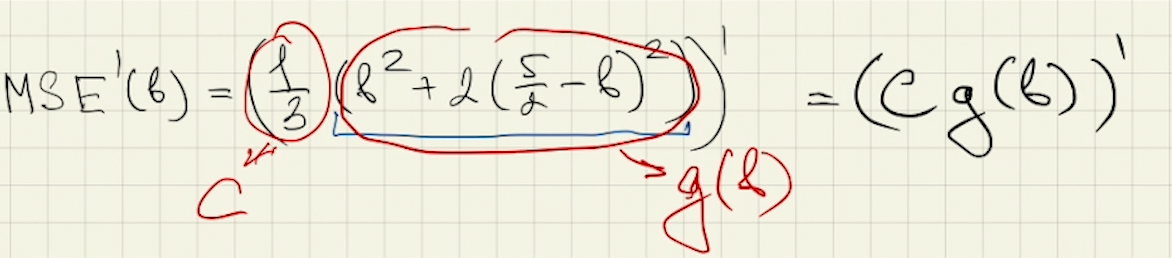 MSE'(b) = (1/3 (b² + 2(5/2 − b)²))' = (C g(b))'
C g(b)